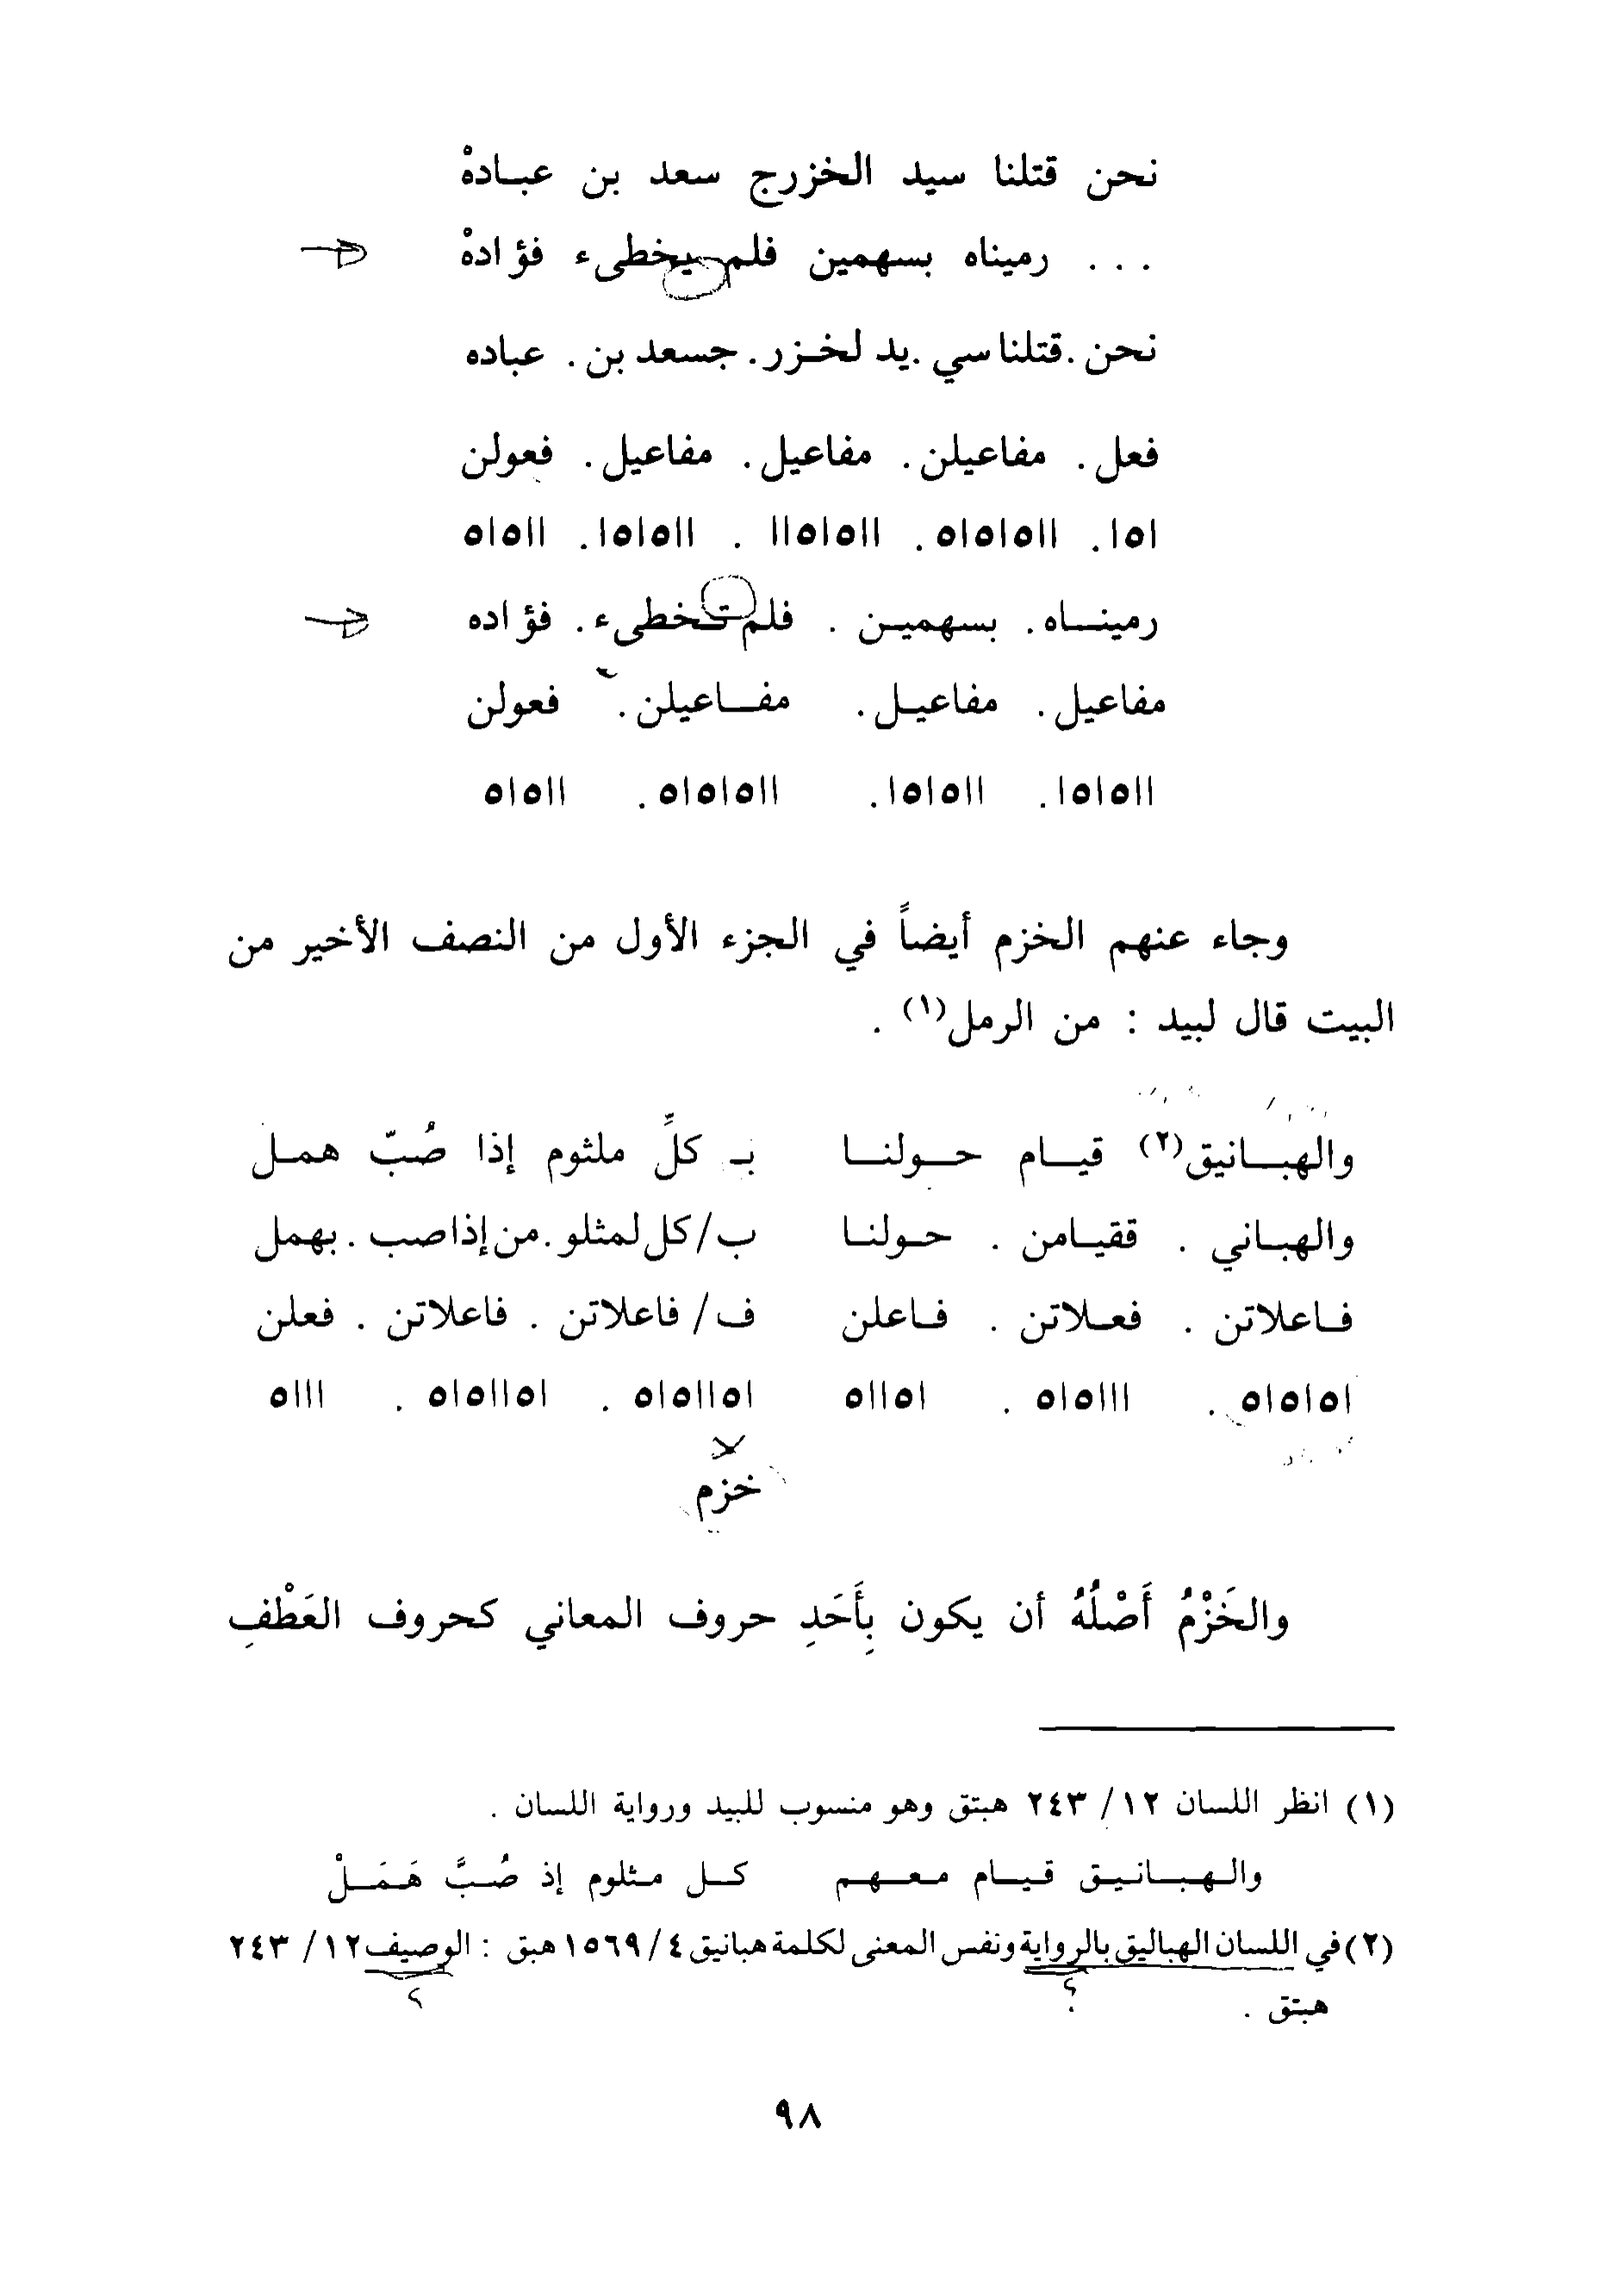 نحن قتلنا سيد الخزرج سعد بن عبادهْ
... رميناه بسهمين فلم يخطىء فؤادهْ
نحن . قتلنا سي . يد لخزر . جسعد بن . عباده
فعل . مفاعيلن . مفاعيل . مفاعيل . فعولن
ا٥ا . اا٥ا٥ا٥ . اا٥ا٥اا . اا٥ا٥ا . اا٥ا٥
رمينـاه . بسهمين . فلم تخطىء . فؤاده
مفاعيل . مفاعيل . مفـاعيلن . فعولن
اا٥ا٥ا . اا٥ا٥ا . اا٥ا٥ا٥ . اا٥ا٥
وجاء عنهم الخزم أيضاً في الجزء الأول من النصف الأخير من
البيت قال لبيد : من الرمل(١) .
والهبـانيق(٢) قيـام حـولنـا بـ كلِّ ملثوم إذا صُبّ همـل
والهبـاني . ققيـامن . حـولنـا ب/ كل لمثلو . من إذا صب . بهمل
فـاعلاتن . فعـلاتن . فـاعلن ف/ فاعلاتن . فاعلاتن . فعلن
ا٥ا٥ا٥ . ااا٥ا٥ . ا٥اا٥ ا٥اا٥ا٥ . ا٥اا٥ا٥ . ااا٥
خزم
والخَزْمُ أَصْلُهُ أن يكون بِأَحَدِ حروف المعاني كحروف العَطْفِ
(١) انظر اللسان ١٢/ ٢٤٣ هبتق وهو منسوب للبيد ورواية اللسان .
والـهـبـانـيـق قـيـام مـعـهـم كـل مـثلوم إذ صُـبَّ هَـمَـلْ
(٢) في اللسان الهباليق بالرواية ونفس المعنى لكلمة هبانيق ٤/ ١٥٦٩ هبق : الوصيف ١٢/ ٢٤٣
هبتق .
؟ ؟
٩٨